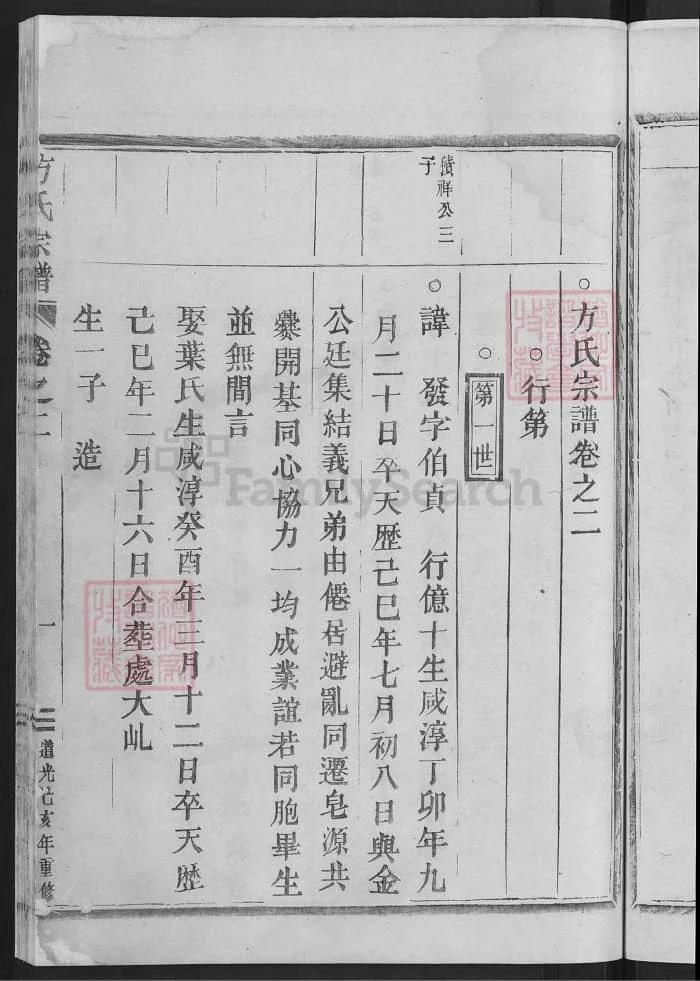 方氏宗譜卷之二
行第
第一世
積祥公三
子
諱 發字伯貞 行億十生咸淳丁卯年九
月二十日卒天歷己巳年七月初八日與金
公廷集結義兄弟由僊居避亂同遷皂源共
爨開基同心協力一均成業誼若同胞畢生
並無間言
娶葉氏生咸淳癸酉年三月十二日卒天歷
己巳年二月十六日合葬處大乢
生一子 造
方氏宗譜 卷之二 一 道光 亥年重修
FamilySearch